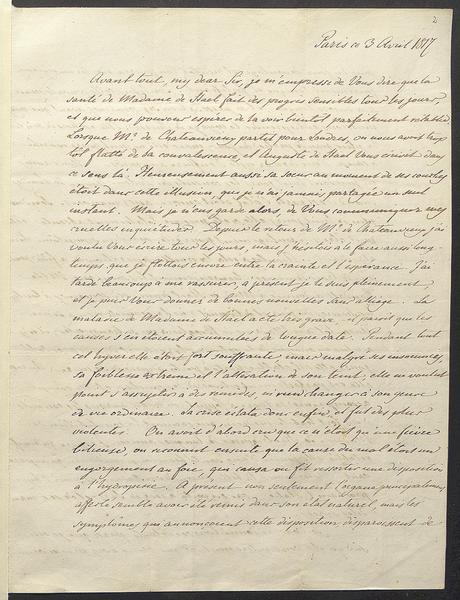 2
Paris ce 3 Avril 1817
Avant tout, my dear Sir, je m'empresse de Vous dire que la
santé de Madame de Stael fait des progrès sensibles tous les jours,
et que nous pouvons espérer de la voir bientôt parfaitement rétablie.
Lorsque Mr. de Chateauvieux partit pour Londres, on nous avoit trop
tôt flatté de la convalescence, et Auguste de Stael Vous écrivit dans
ce sens là. Heureusement aussi sa soeur au moment de ses couches
étoit dans cette illusion, que je n'ai jamais partagée un seul
instant. Mais je n'eus garde alors de Vous communiquer mes
cruelles inquiétudes. Depuis le retour de Mr. de Chateauvieux j'ai
voulu Vous écrire tous les jours, mais j'hésitois à le faire aussi long-
temps que je flottois encore entre la crainte et l'espérance. J'ai
tardé beaucoup à me rassurer, à présent je le suis pleinement,
et je puis Vous donner de bonnes nouvelles sans alliage. La
maladie de Madame de Stael a été très grave, il paroit que les
causes s'en étoient accumulées de longue date. Pendant tout
cet hyver elle étoit fort souffrante; mais malgré ses insomnies,
sa foiblesse extrême et l'altération de son teint, elle ne vouloit
point s'assujettir à des remèdes, ni rien changer à son genre
de vie ordinaire. La crise éclata donc enfin, et fut des plus
violentes. On avoit d'abord cru que ce n'étoit qu'une fièvre
bilieuse, on reconnut ensuite que la cause du mal étoit un
engorgement au foie, qui causa ou fit ressortir une disposition
à l'hydropisie. A présent non seulement l'organe principalement
affecté semble avoir été remis dans son état naturel, mais les
symptômes qui annoncoient cette disposition, disparoissent de